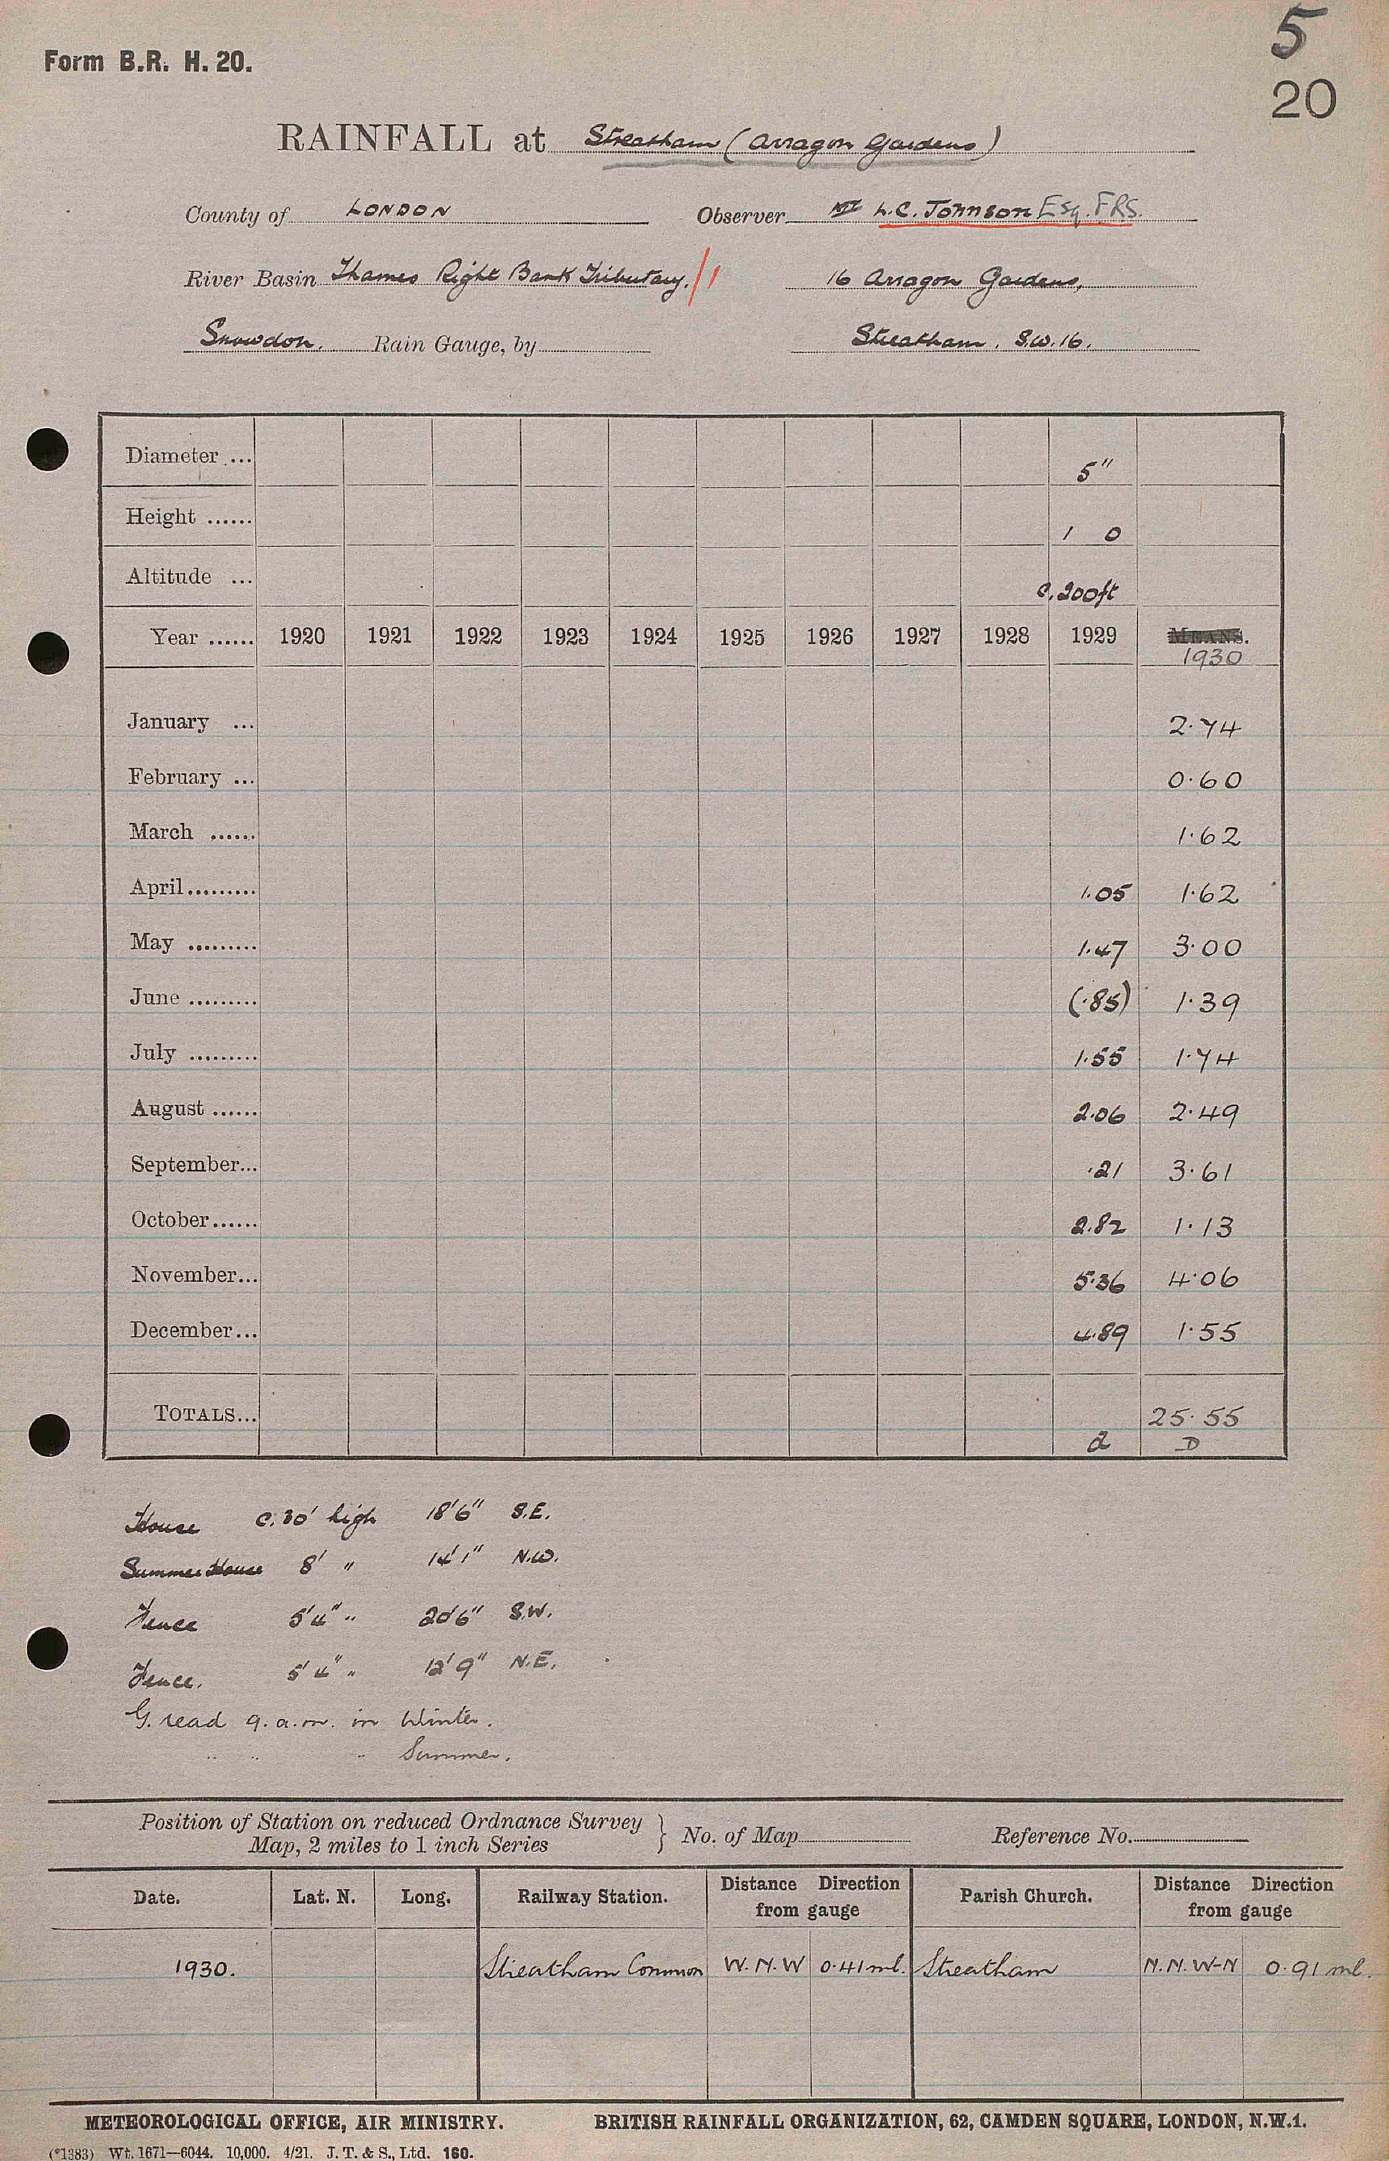 5
Form B.R. H. 20.
20
RAINFALL at Streatham (Arragon Gardens)
County of LONDON Observer Mr L.C. Johnson Esq. F.R.S.
River Basin Thames Right Bank Tributary. /1 16 Arragon Gardens,
Snowdon. Rain Gauge, by Streatham, S.W.16.
Diameter ... 5"
Height ...... 1 0
Altitude ... c. 200ft
Year ...... 1920 1921 1922 1923 1924 1925 1926 1927 1928 1929 MEANS.
1930
January ... 2.74
February ... 0.60
March ...... 1.62
April ......... 1.05 1.62
May ......... 1.47 3.00
June ......... (.85) 1.39
July ......... 1.55 1.74
August ...... 2.06 2.49
September... .21 3.61
October...... 2.82 1.13
November... 5.36 4.06
December... 4.89 1.55
TOTALS... 25.55
d D
House c. 30' high 18'6" S.E.
Summer House 8' " 14'1" N.W.
Fence 5'4" " 20'6" S.W.
Fence. 5'4" " 12'9" N.E.
G. read 9. a.m. in Winter.
" " " Summer.
Position of Station on reduced Ordnance Survey
Map, 2 miles to 1 inch Series } No. of Map Reference No.
Date. Lat. N. Long. Railway Station. Distance Direction from gauge Parish Church. Distance Direction from gauge
1930. Streatham Common W.N.W 0.41 ml. Streatham N.N.W-N 0.91 ml.
METEOROLOGICAL OFFICE, AIR MINISTRY. BRITISH RAINFALL ORGANIZATION, 62, CAMDEN SQUARE, LONDON, N.W.1.
(*1383) Wt. 1671—6044. 10,000. 4/21. J. T. & S., Ltd. 160.